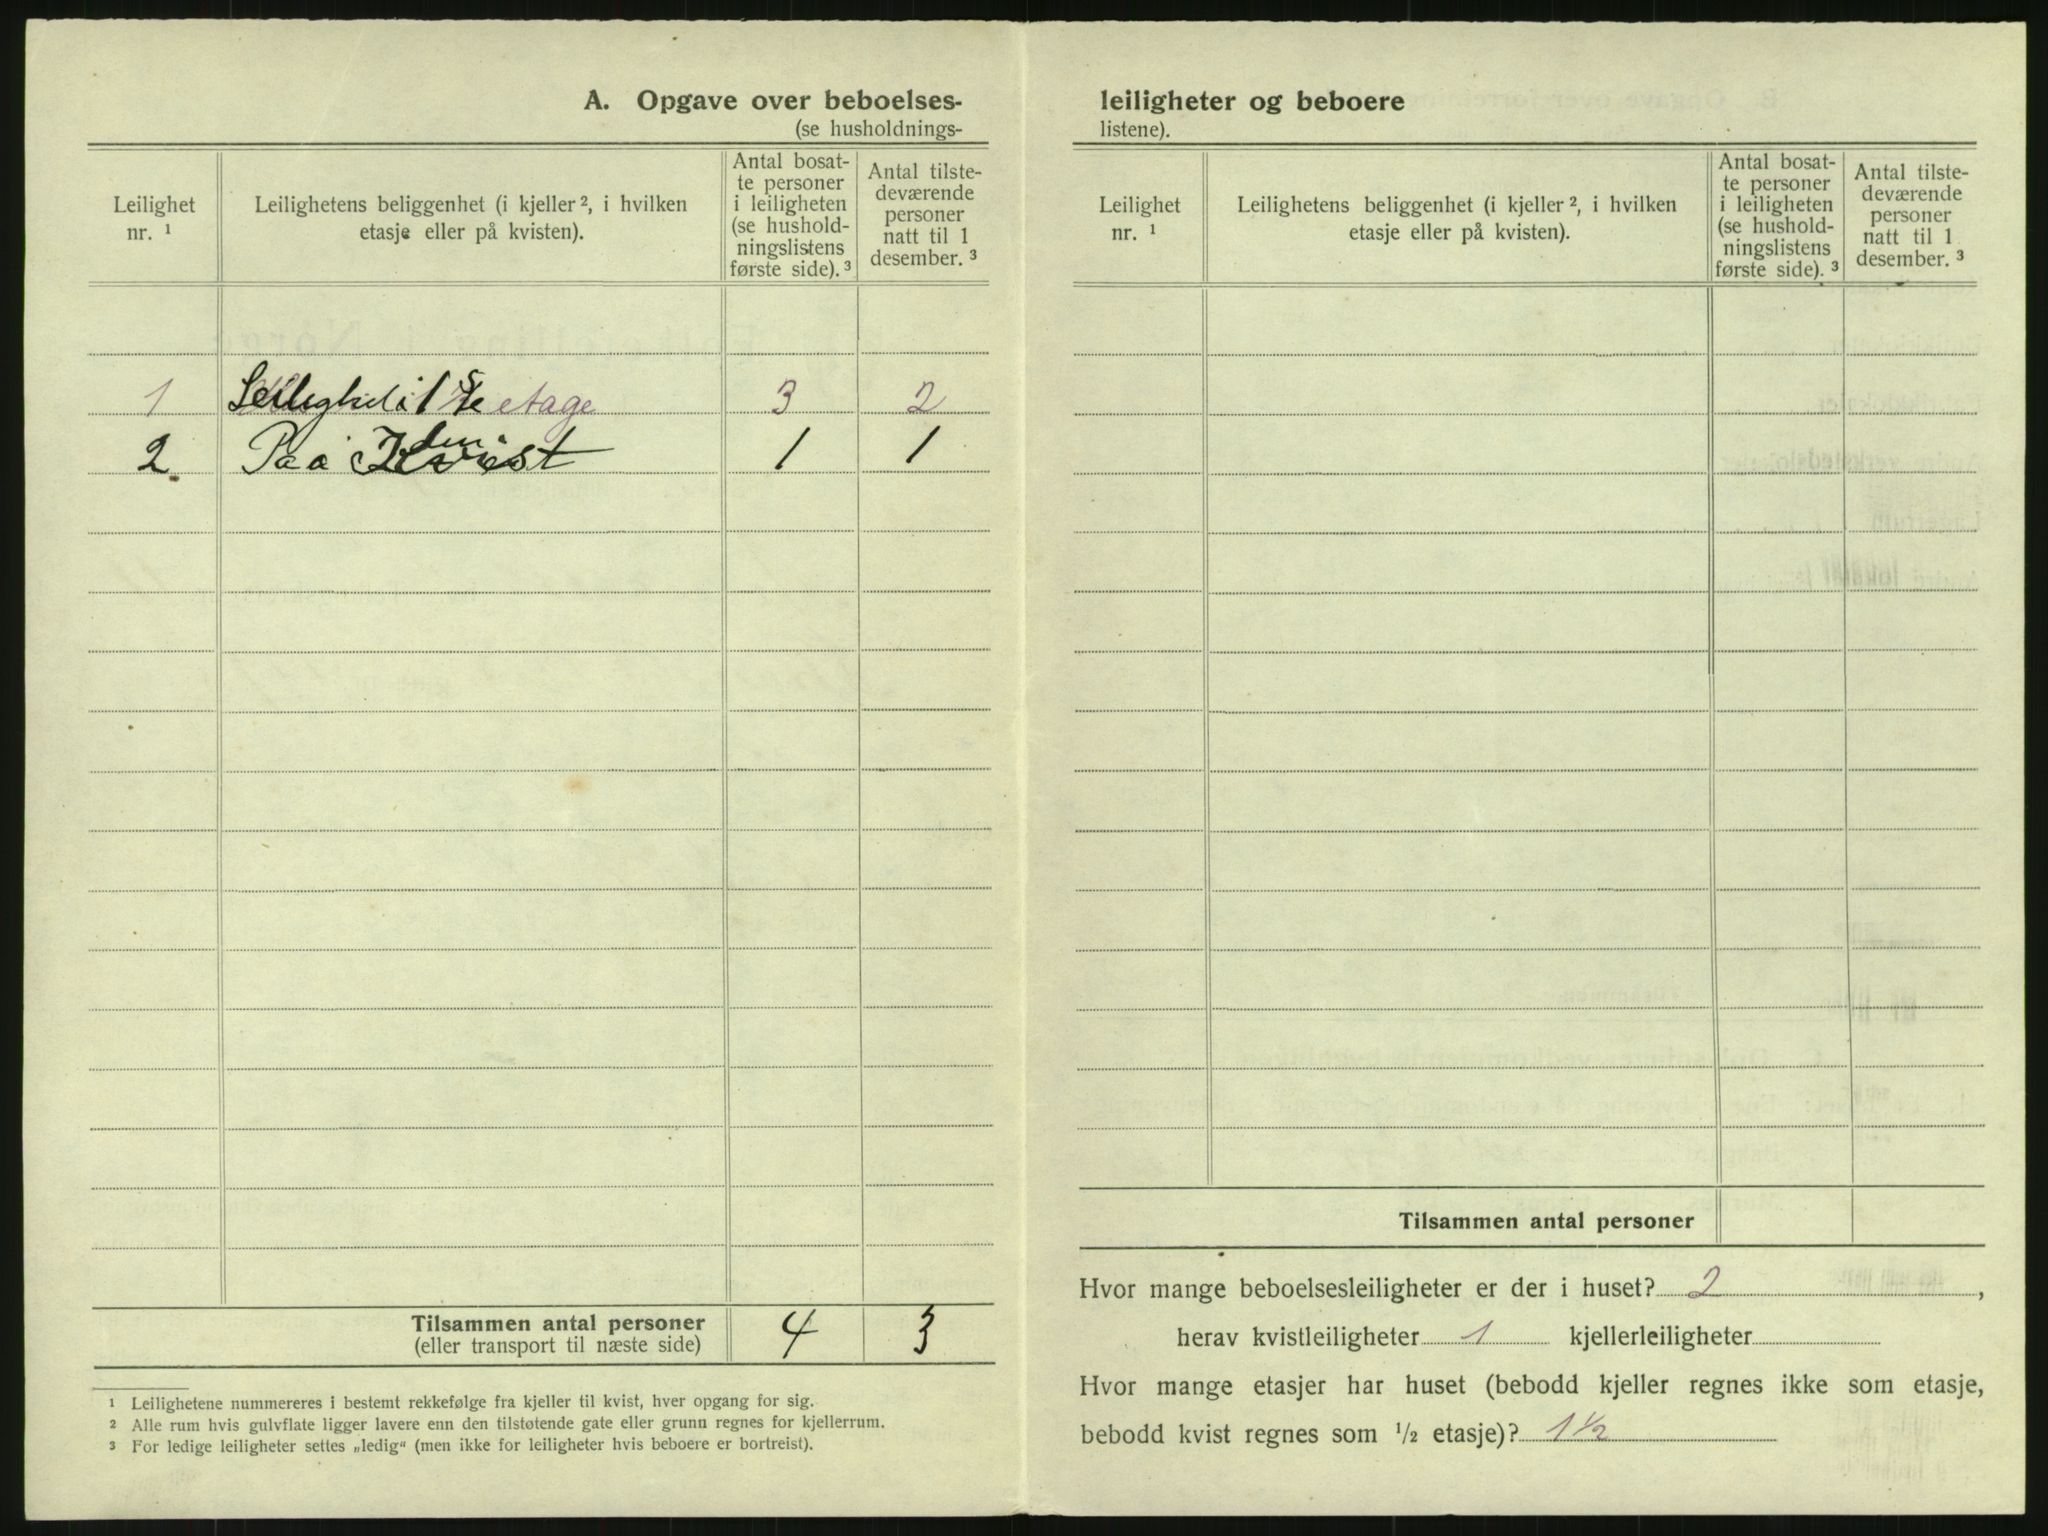 A. Opgave over beboelses-
(se husholdnings-
Leilighet nr. ¹
Leilighetens beliggenhet (i kjeller ², i hvilken
etasje eller på kvisten).
Antal bosat-
te personer
i leiligheten
(se hushold-
ningslistens
første side). ³
Antal tilste-
deværende
personer
natt til 1
desember. ³
1 Leilighet i 1ste etage 3 2
2 Paa Kvist 1 1
Tilsammen antal personer 4 3
(eller transport til næste side)
¹ Leilighetene nummereres i bestemt rekkefølge fra kjeller til kvist, hver opgang for sig.
² Alle rum hvis gulvflate ligger lavere enn den tilstøtende gate eller grunn regnes for kjellerrum.
³ For ledige leiligheter settes „ledig“ (men ikke for leiligheter hvis beboere er bortreist).
leiligheter og beboere
listene).
Leilighet
nr. ¹
Leilighetens beliggenhet (i kjeller ², i hvilken
etasje eller på kvisten).
Antal bosat-
te personer
i leiligheten
(se hushold-
ningslistens
første side). ³
Antal tilste-
deværende
personer
natt til 1
desember. ³
Tilsammen antal personer
Hvor mange beboelsesleiligheter er der i huset? 2,
herav kvistleiligheter 1 kjellerleiligheter
Hvor mange etasjer har huset (bebodd kjeller regnes ikke som etasje,
bebodd kvist regnes som ½ etasje)? 1½